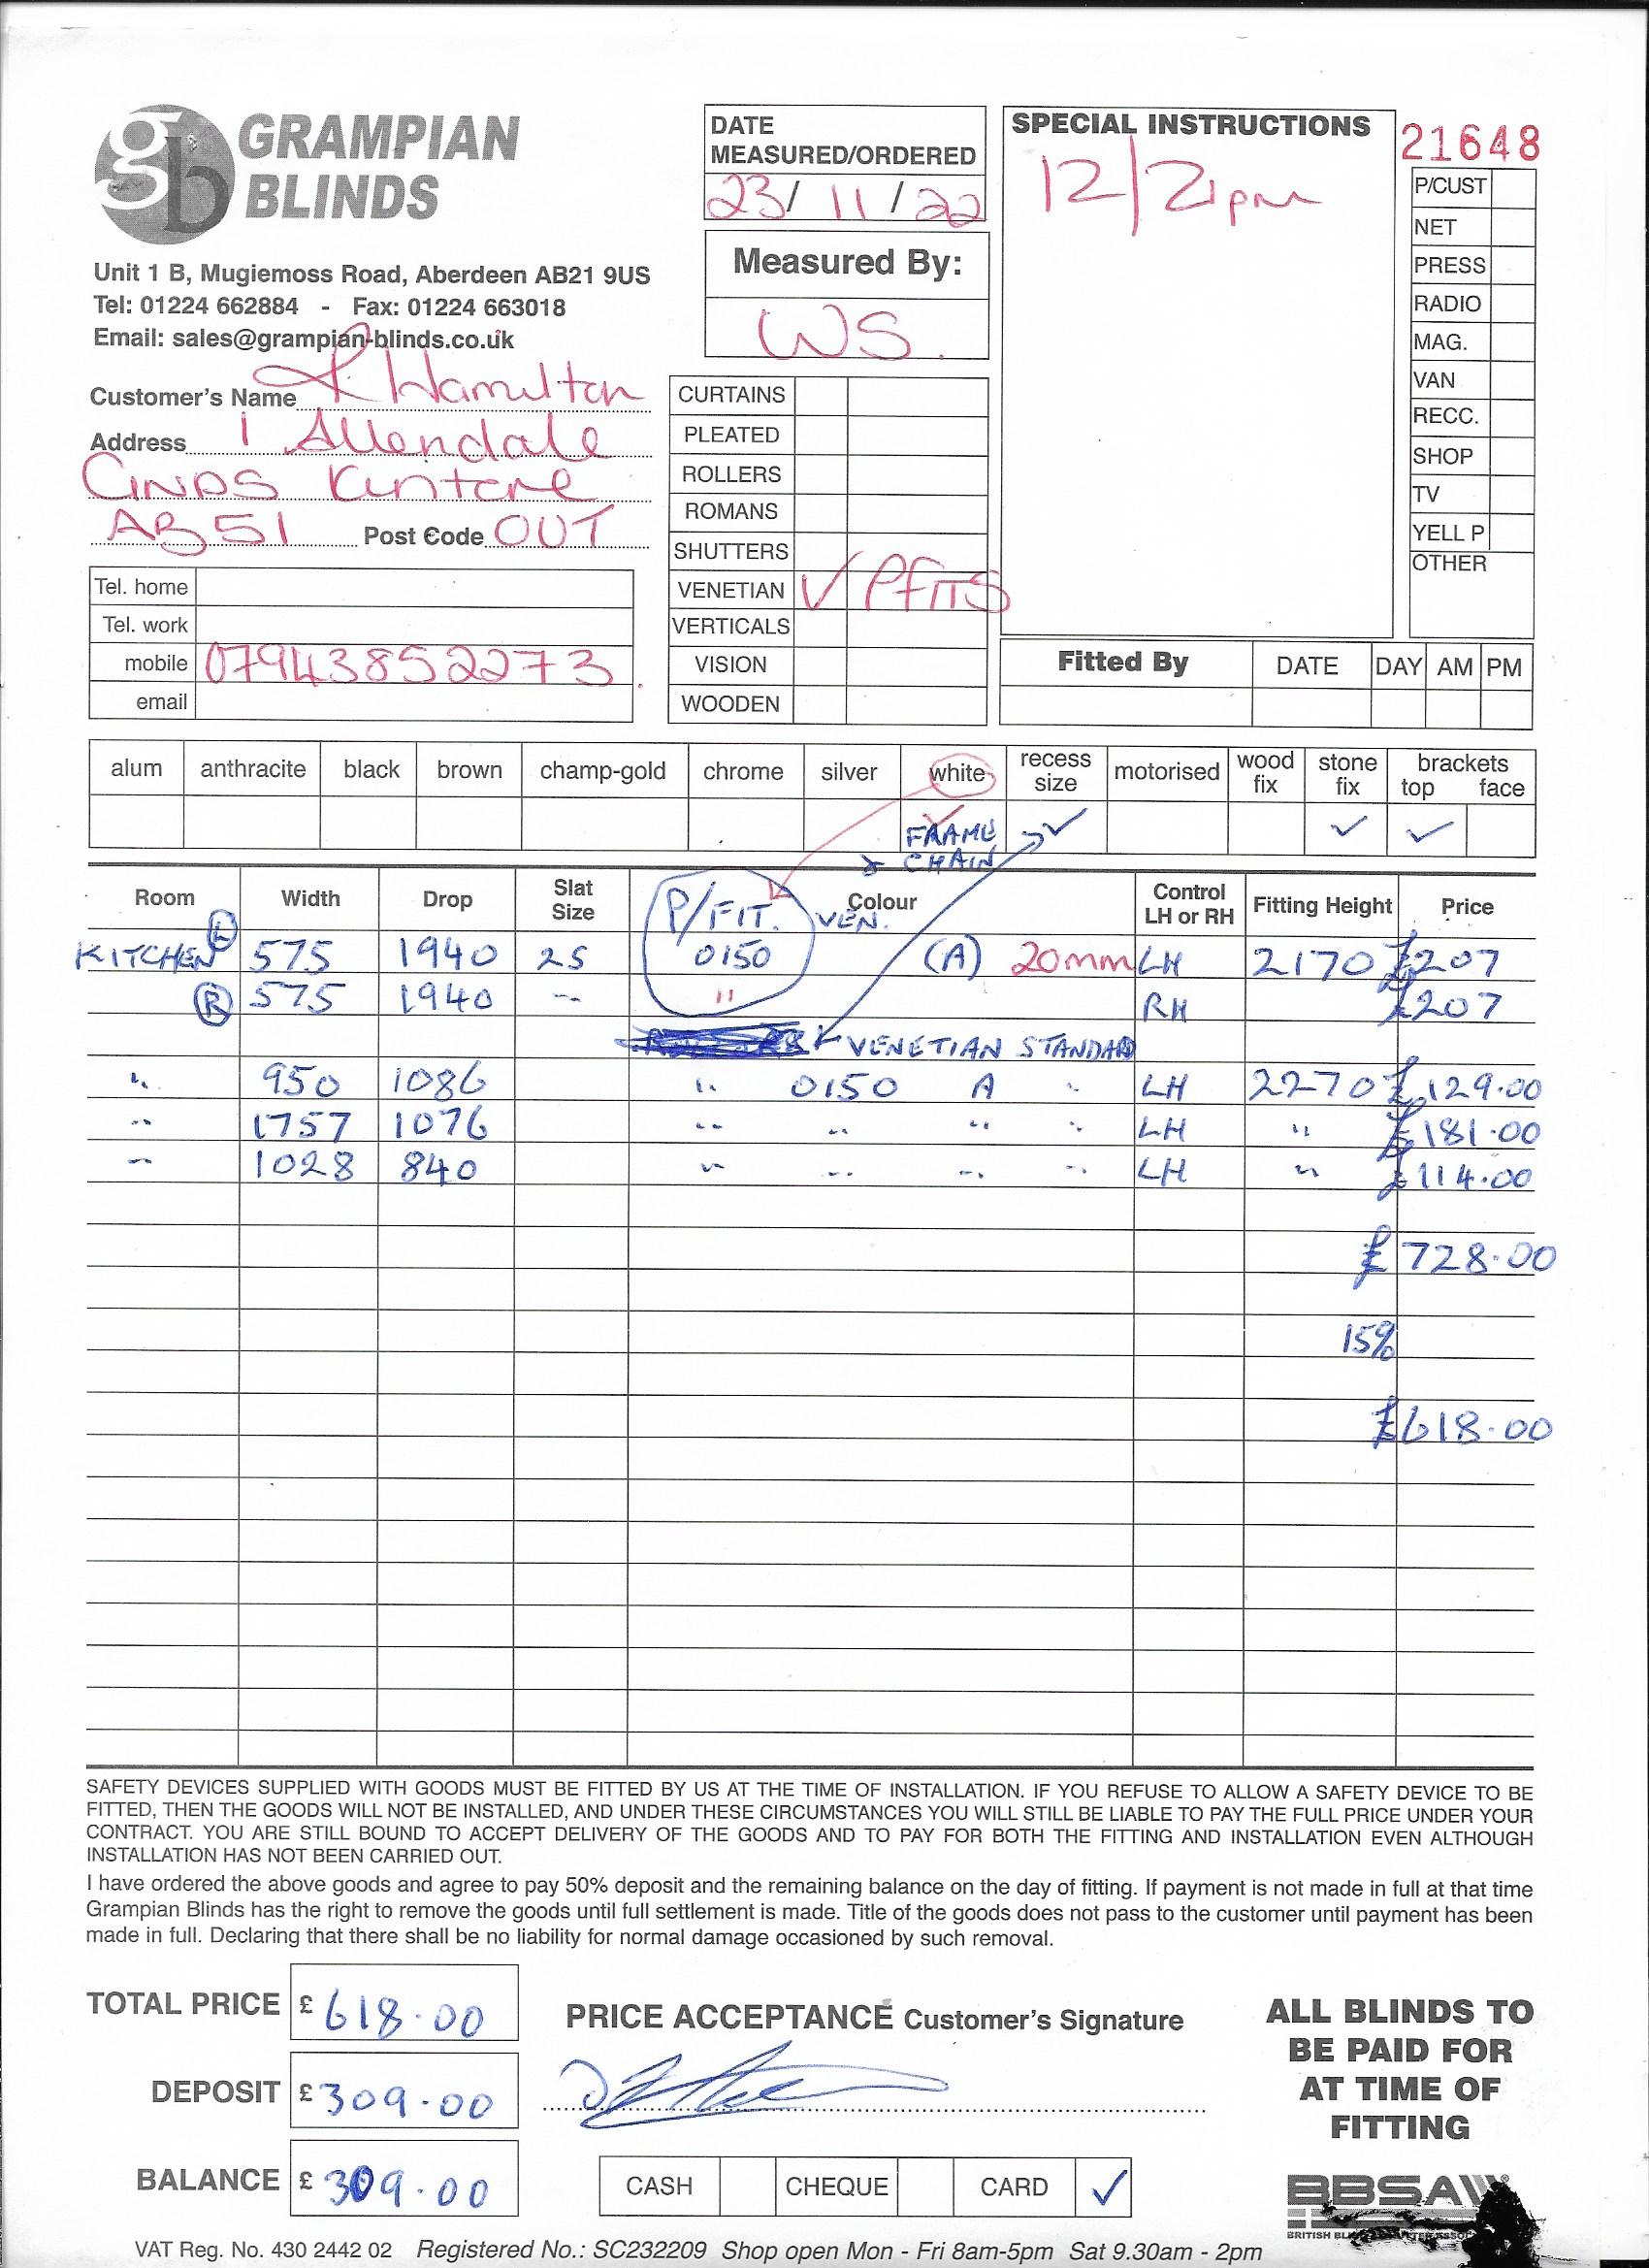 gb GRAMPIAN BLINDS
Unit 1 B, Mugiemoss Road, Aberdeen AB21 9US
Tel: 01224 662884 - Fax: 01224 663018
Email: sales@grampian-blinds.co.uk
DATE MEASURED/ORDERED
23/ 11 / 22
Measured By:
WS.
SPECIAL INSTRUCTIONS
12/21pm
21648
P/CUST
NET
PRESS
RADIO
MAG.
VAN
RECC.
SHOP
TV
YELL P
OTHER
Customer's Name Hamilton
Address 1 Allendale
GNDS Kintore
AB51 Post Code OUT
Tel. home
Tel. work
mobile 07943852273.
email
CURTAINS
PLEATED
ROLLERS
ROMANS
SHUTTERS
VENETIAN ✓ PFITS
VERTICALS
VISION
WOODEN
Fitted By DATE DAY AM PM
alum anthracite black brown champ-gold chrome silver white recess size motorised wood fix stone fix brackets top face
FRAME ✓ ✓ ✓
& CHAIN
Room Width Drop Slat Size Colour Control LH or RH Fitting Height Price
P/FIT. VEN.
KITCHEN L 575 1940 25 0150 (A) 20mm LH 2170 £207
R 575 1940 " " RH £207
VENETIAN STANDARD
" 950 1086 " 0150 A " LH 2270 £129.00
" 1757 1076 " " " " LH " £181.00
" 1028 840 " " " " LH " £114.00
£728.00
15%
£618.00
SAFETY DEVICES SUPPLIED WITH GOODS MUST BE FITTED BY US AT THE TIME OF INSTALLATION. IF YOU REFUSE TO ALLOW A SAFETY DEVICE TO BE
FITTED, THEN THE GOODS WILL NOT BE INSTALLED, AND UNDER THESE CIRCUMSTANCES YOU WILL STILL BE LIABLE TO PAY THE FULL PRICE UNDER YOUR
CONTRACT. YOU ARE STILL BOUND TO ACCEPT DELIVERY OF THE GOODS AND TO PAY FOR BOTH THE FITTING AND INSTALLATION EVEN ALTHOUGH
INSTALLATION HAS NOT BEEN CARRIED OUT.
I have ordered the above goods and agree to pay 50% deposit and the remaining balance on the day of fitting. If payment is not made in full at that time
Grampian Blinds has the right to remove the goods until full settlement is made. Title of the goods does not pass to the customer until payment has been
made in full. Declaring that there shall be no liability for normal damage occasioned by such removal.
TOTAL PRICE £ 618.00
DEPOSIT £ 309.00
BALANCE £ 309.00
PRICE ACCEPTANCE Customer's Signature
CASH CHEQUE CARD ✓
ALL BLINDS TO
BE PAID FOR
AT TIME OF
FITTING
BBSA
VAT Reg. No. 430 2442 02 Registered No.: SC232209 Shop open Mon - Fri 8am-5pm Sat 9.30am - 2pm